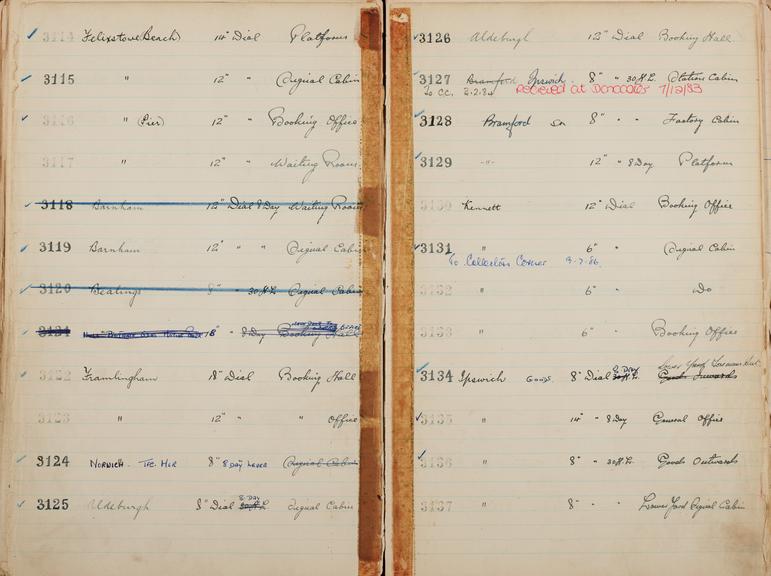 3114 Felixstowe (Beach) 14" Dial Platform
3115 " 12" " Signal Cabin
3116 " (Pier) 12" " Booking Office
3117 " 12" " Waiting Room
3118 Barnham 12" Dial 8 Day Waiting Room
3119 Barnham 12" " " Signal Cabin
3120 Bealings 8" " 30 Hr. Signal Cabin
3121 18" " 8 Day Booking Hall
3122 Framlingham 18" Dial Booking Hall
3123 " 12" " " Office
3124 NORWICH - 8" 8 DAY LEVER Signal Cabin
8 DAY
3125 Aldeburgh 8" Dial 30 Hr. Signal Cabin
3126 Aldeburgh 12" Dial Booking Hall
3127 Bramford Ipswich 8" " 30 Hr. Station Cabin
To CC. 2.2.84 RECEIVED AT DONCASTER 7/12/83
3128 Bramford Stn 8" " " Factory Cabin
3129 " 12" " 8 Day Platform
3130 Kennett 12" Dial Booking Office
3131 " 6" " Signal Cabin
To Collectors Corner 9-7-86.
3132 " 6" " Do
3133 " 6" " Booking Office
8 DAY Lower Yard Foreman
3134 Ipswich GOODS. 8" Dial 30 Hr. Goods Inwards
3135 " 14" " 8 Day General Office
3136 " 8" " 30 Hr. Goods Outwards
3137 " 8" " " Lower Yard Signal Cabin